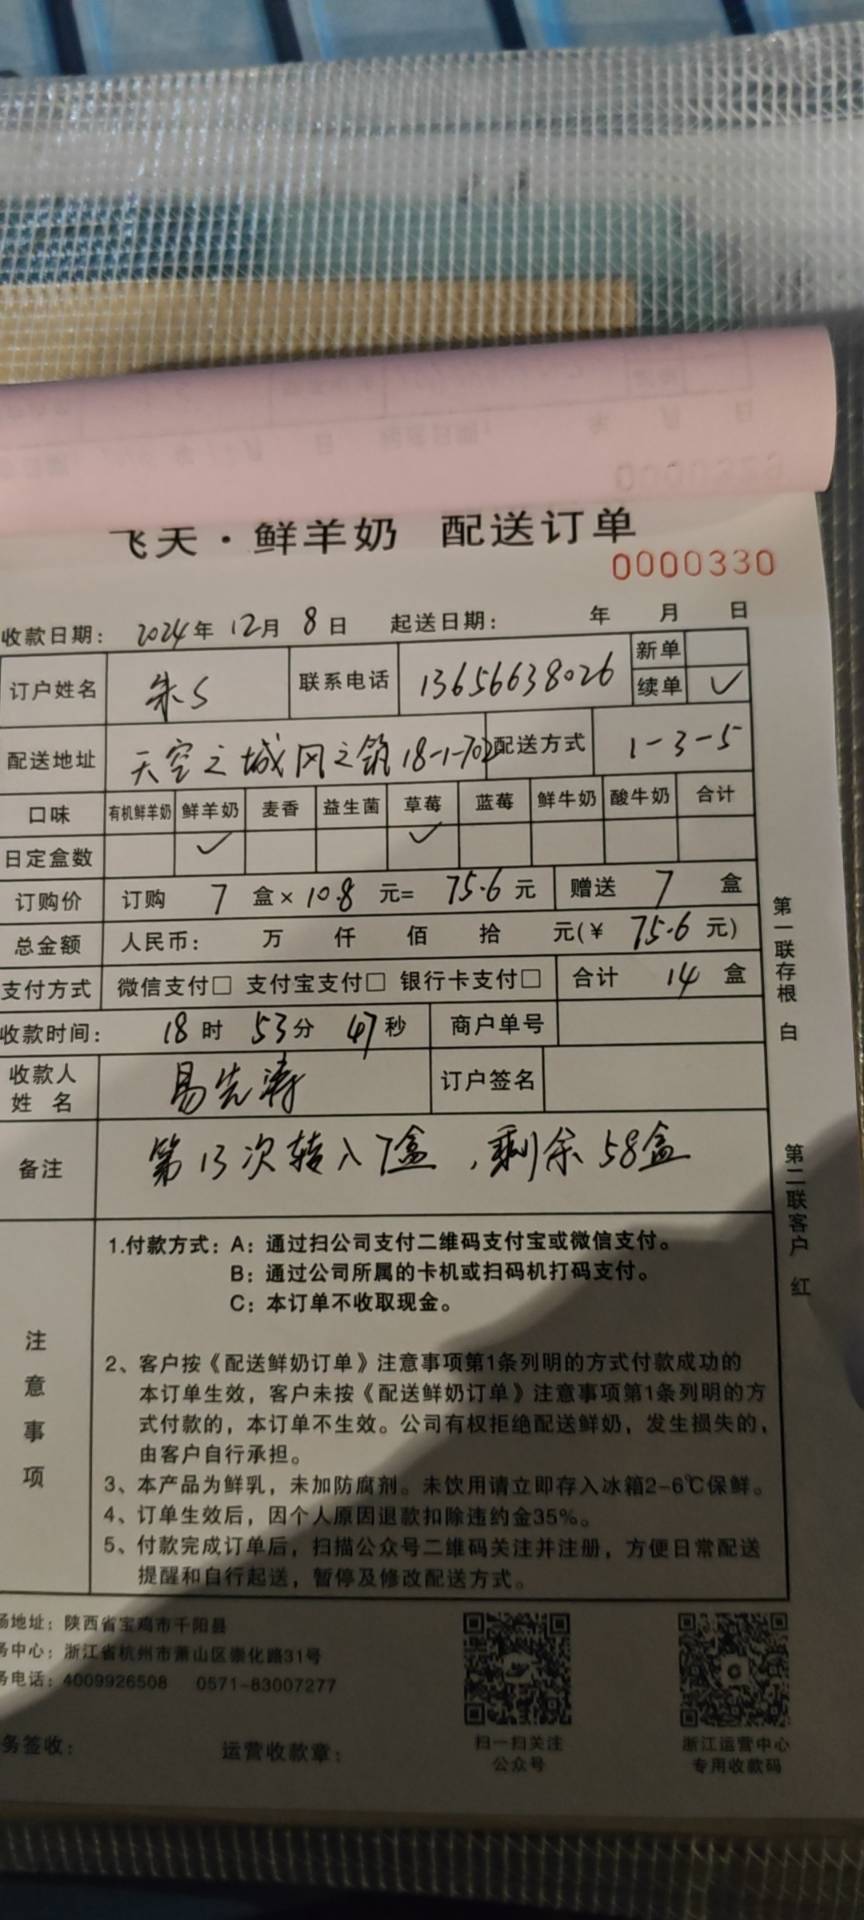 飞天·鲜羊奶 配送订单
0000330
收款日期： 2024年 12月 8日 起送日期： 年 月 日
订户姓名 朱S 联系电话 13656638026 新单
续单 ✓
配送地址 天空之城风之筑18-1-702 配送方式 1-3-5
口味 有机鲜羊奶 鲜羊奶 麦香 益生菌 草莓 蓝莓 鲜牛奶 酸牛奶 合计
日定盒数 ✓ ✓
订购价 订购 7 盒×10.8 元= 75.6 元 赠送 7 盒
总金额 人民币： 万 仟 佰 拾 元(¥ 75.6 元)
支付方式 微信支付□ 支付宝支付□ 银行卡支付□ 合计 14 盒
收款时间： 18时 53分 47秒 商户单号
收款人
姓 名 易先涛 订户签名
备注 第13次转入7盒，剩余58盒
第一联存根 白
第二联客户 红
注意事项
1.付款方式：A：通过扫公司支付二维码支付宝或微信支付。
B：通过公司所属的卡机或扫码机打码支付。
C：本订单不收取现金。
2、客户按《配送鲜奶订单》注意事项第1条列明的方式付款成功的
本订单生效，客户未按《配送鲜奶订单》注意事项第1条列明的方
式付款的，本订单不生效。公司有权拒绝配送鲜奶，发生损失的，
由客户自行承担。
3、本产品为鲜乳，未加防腐剂。未饮用请立即存入冰箱2-6℃保鲜。
4、订单生效后，因个人原因退款扣除违约金35%。
5、付款完成订单后，扫描公众号二维码关注并注册，方便日常配送
提醒和自行起送，暂停及修改配送方式。
场地址：陕西省宝鸡市千阳县
务中心：浙江省杭州市萧山区崇化路31号
务电话：4009926508 0571-83007277
务签收： 运营收款章：
扫一扫关注
公众号
浙江运营中心
专用收款码